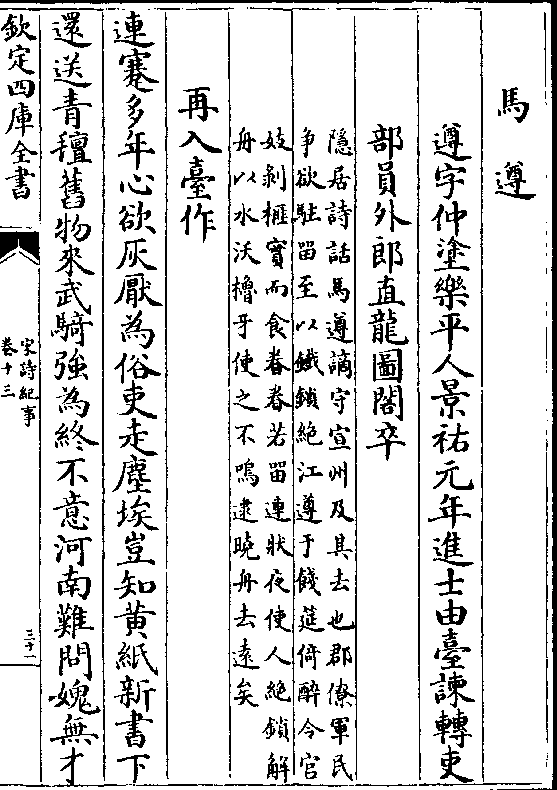 馬遵
遵字仲塗樂平人景祐元年進士由臺諫轉吏
部員外郎直龍圖閣卒
隱居詩話馬遵謫守宣州及其去也郡僚軍民
争欲駐畱至以鐵鎖絕江遵于餞筵倚醉令官
妓剥榧實而食眷眷若畱連狀夜使人絕鎖解
舟以水沃櫓牙使之不鳴逮曉舟去遠矣
再入臺作
連蹇多年心欲灰厭為俗吏走塵埃豈知黄紙新書下
還送青氊舊物來武騎強為終不意河南難問媿無才
欽定四庫全書
宋詩紀事
卷十三
三十一